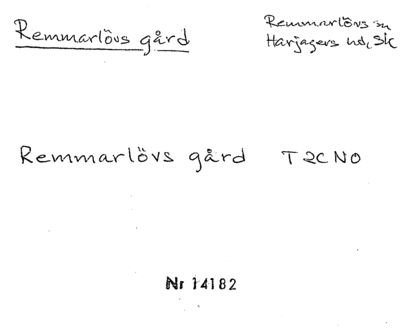 Remmarlövs gård
Remmarlövs sn
Harjagers hd, Sk
Remmarlövs gård T2CNO
Nr 14182